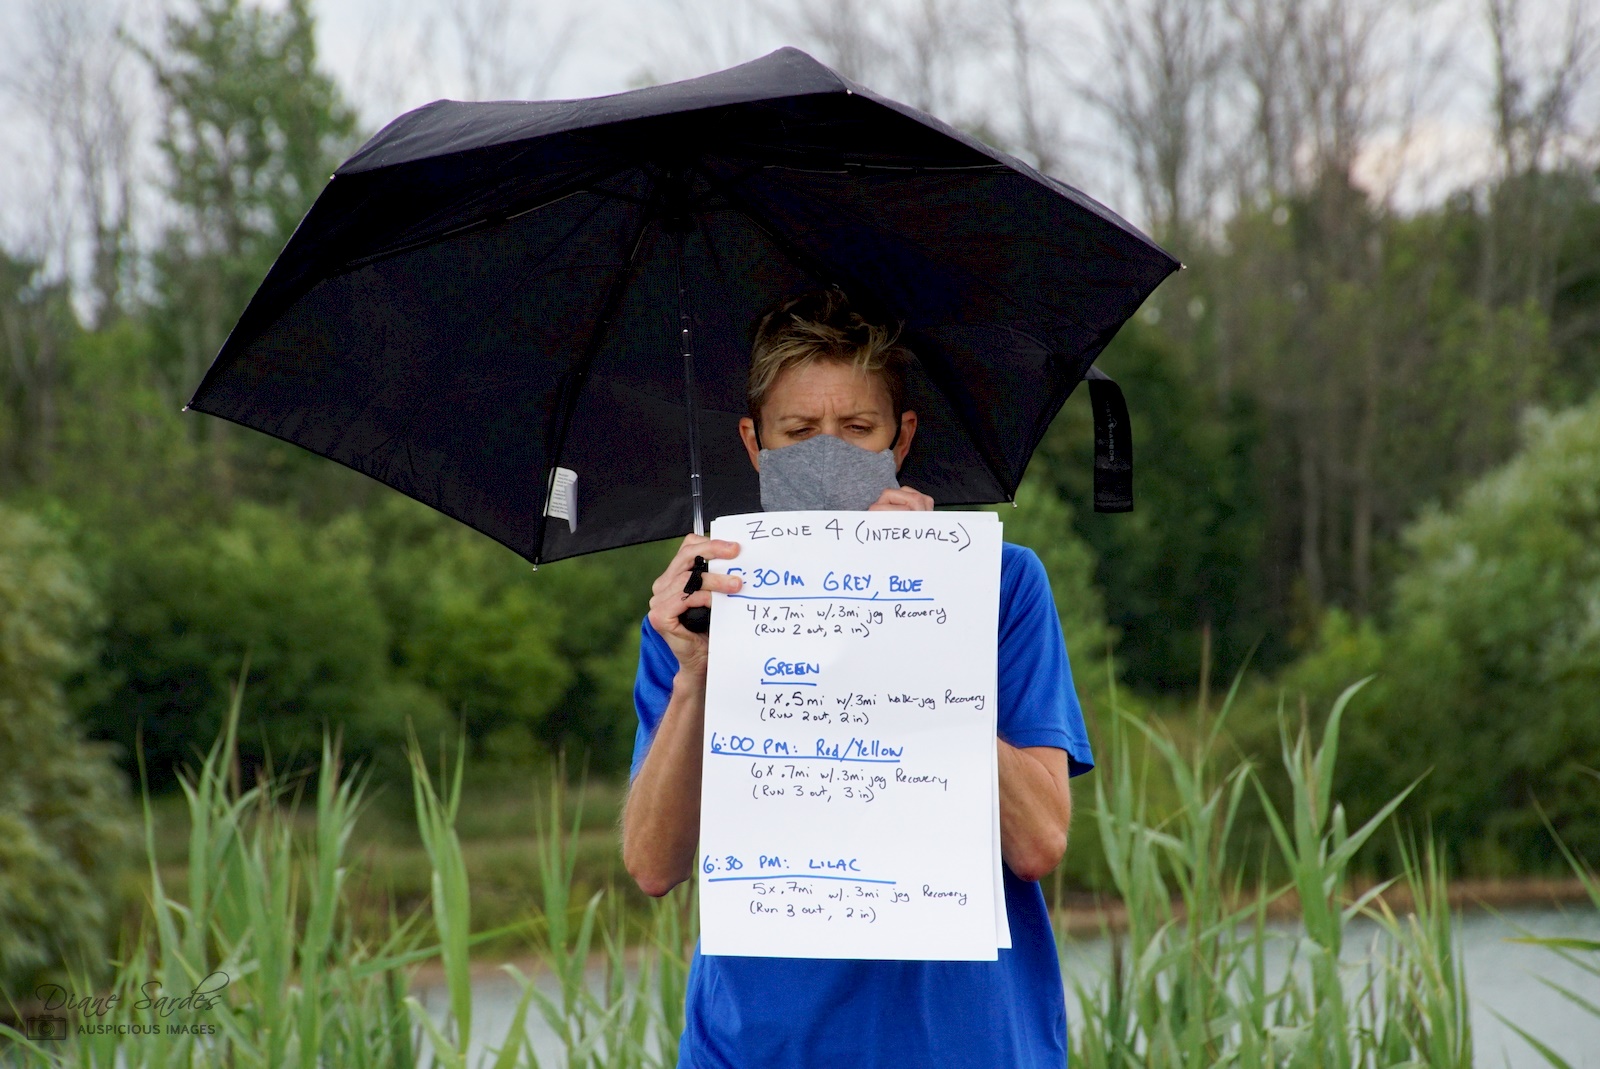 ZONE 4 (INTERVALS)
5:30PM GREY, BLUE
4 X .7mi w/.3mi jog Recovery
(Run 2 out, 2 in)
GREEN
4 X .5mi w/.3mi walk-jog Recovery
(Run 2 out, 2 in)
6:00 PM: Red/Yellow
6 X .7mi w/.3mi jog Recovery
(Run 3 out, 3 in)
6:30 PM: LILAC
5 x .7mi w/.3mi jog Recovery
(Run 3 out, 2 in)
Diane Sardes
AUSPICIOUS IMAGES